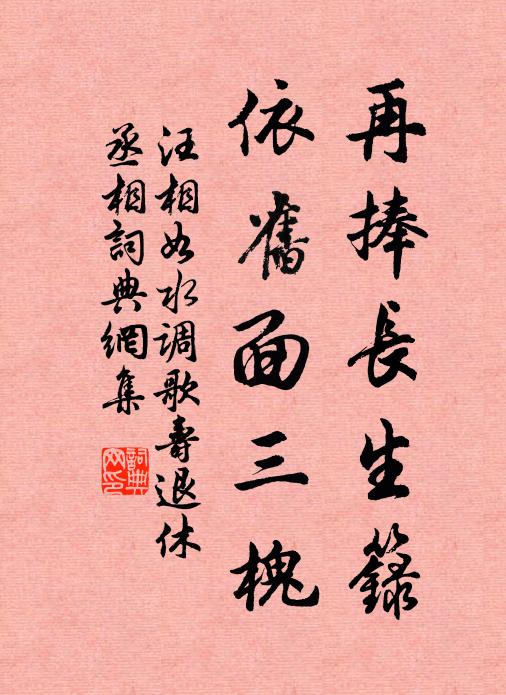 再捧長生籙
依舊面三槐
汪相如水调歌壽退休
丞相詞典網集
詞典网印